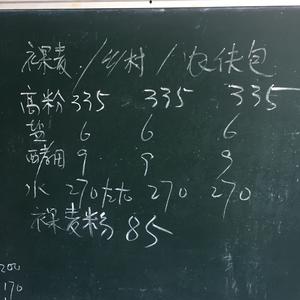 裸麦/乡村/农伕包
高粉 335 335 335
盐 6 6 6
酵母 9 9 9
水 270左右 270 270
裸麦粉 85
200
170